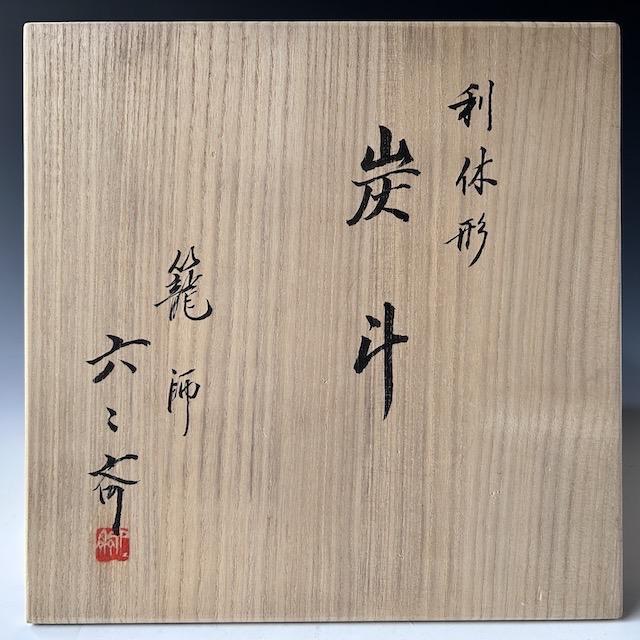 利休形
炭斗
籠師
六々斎